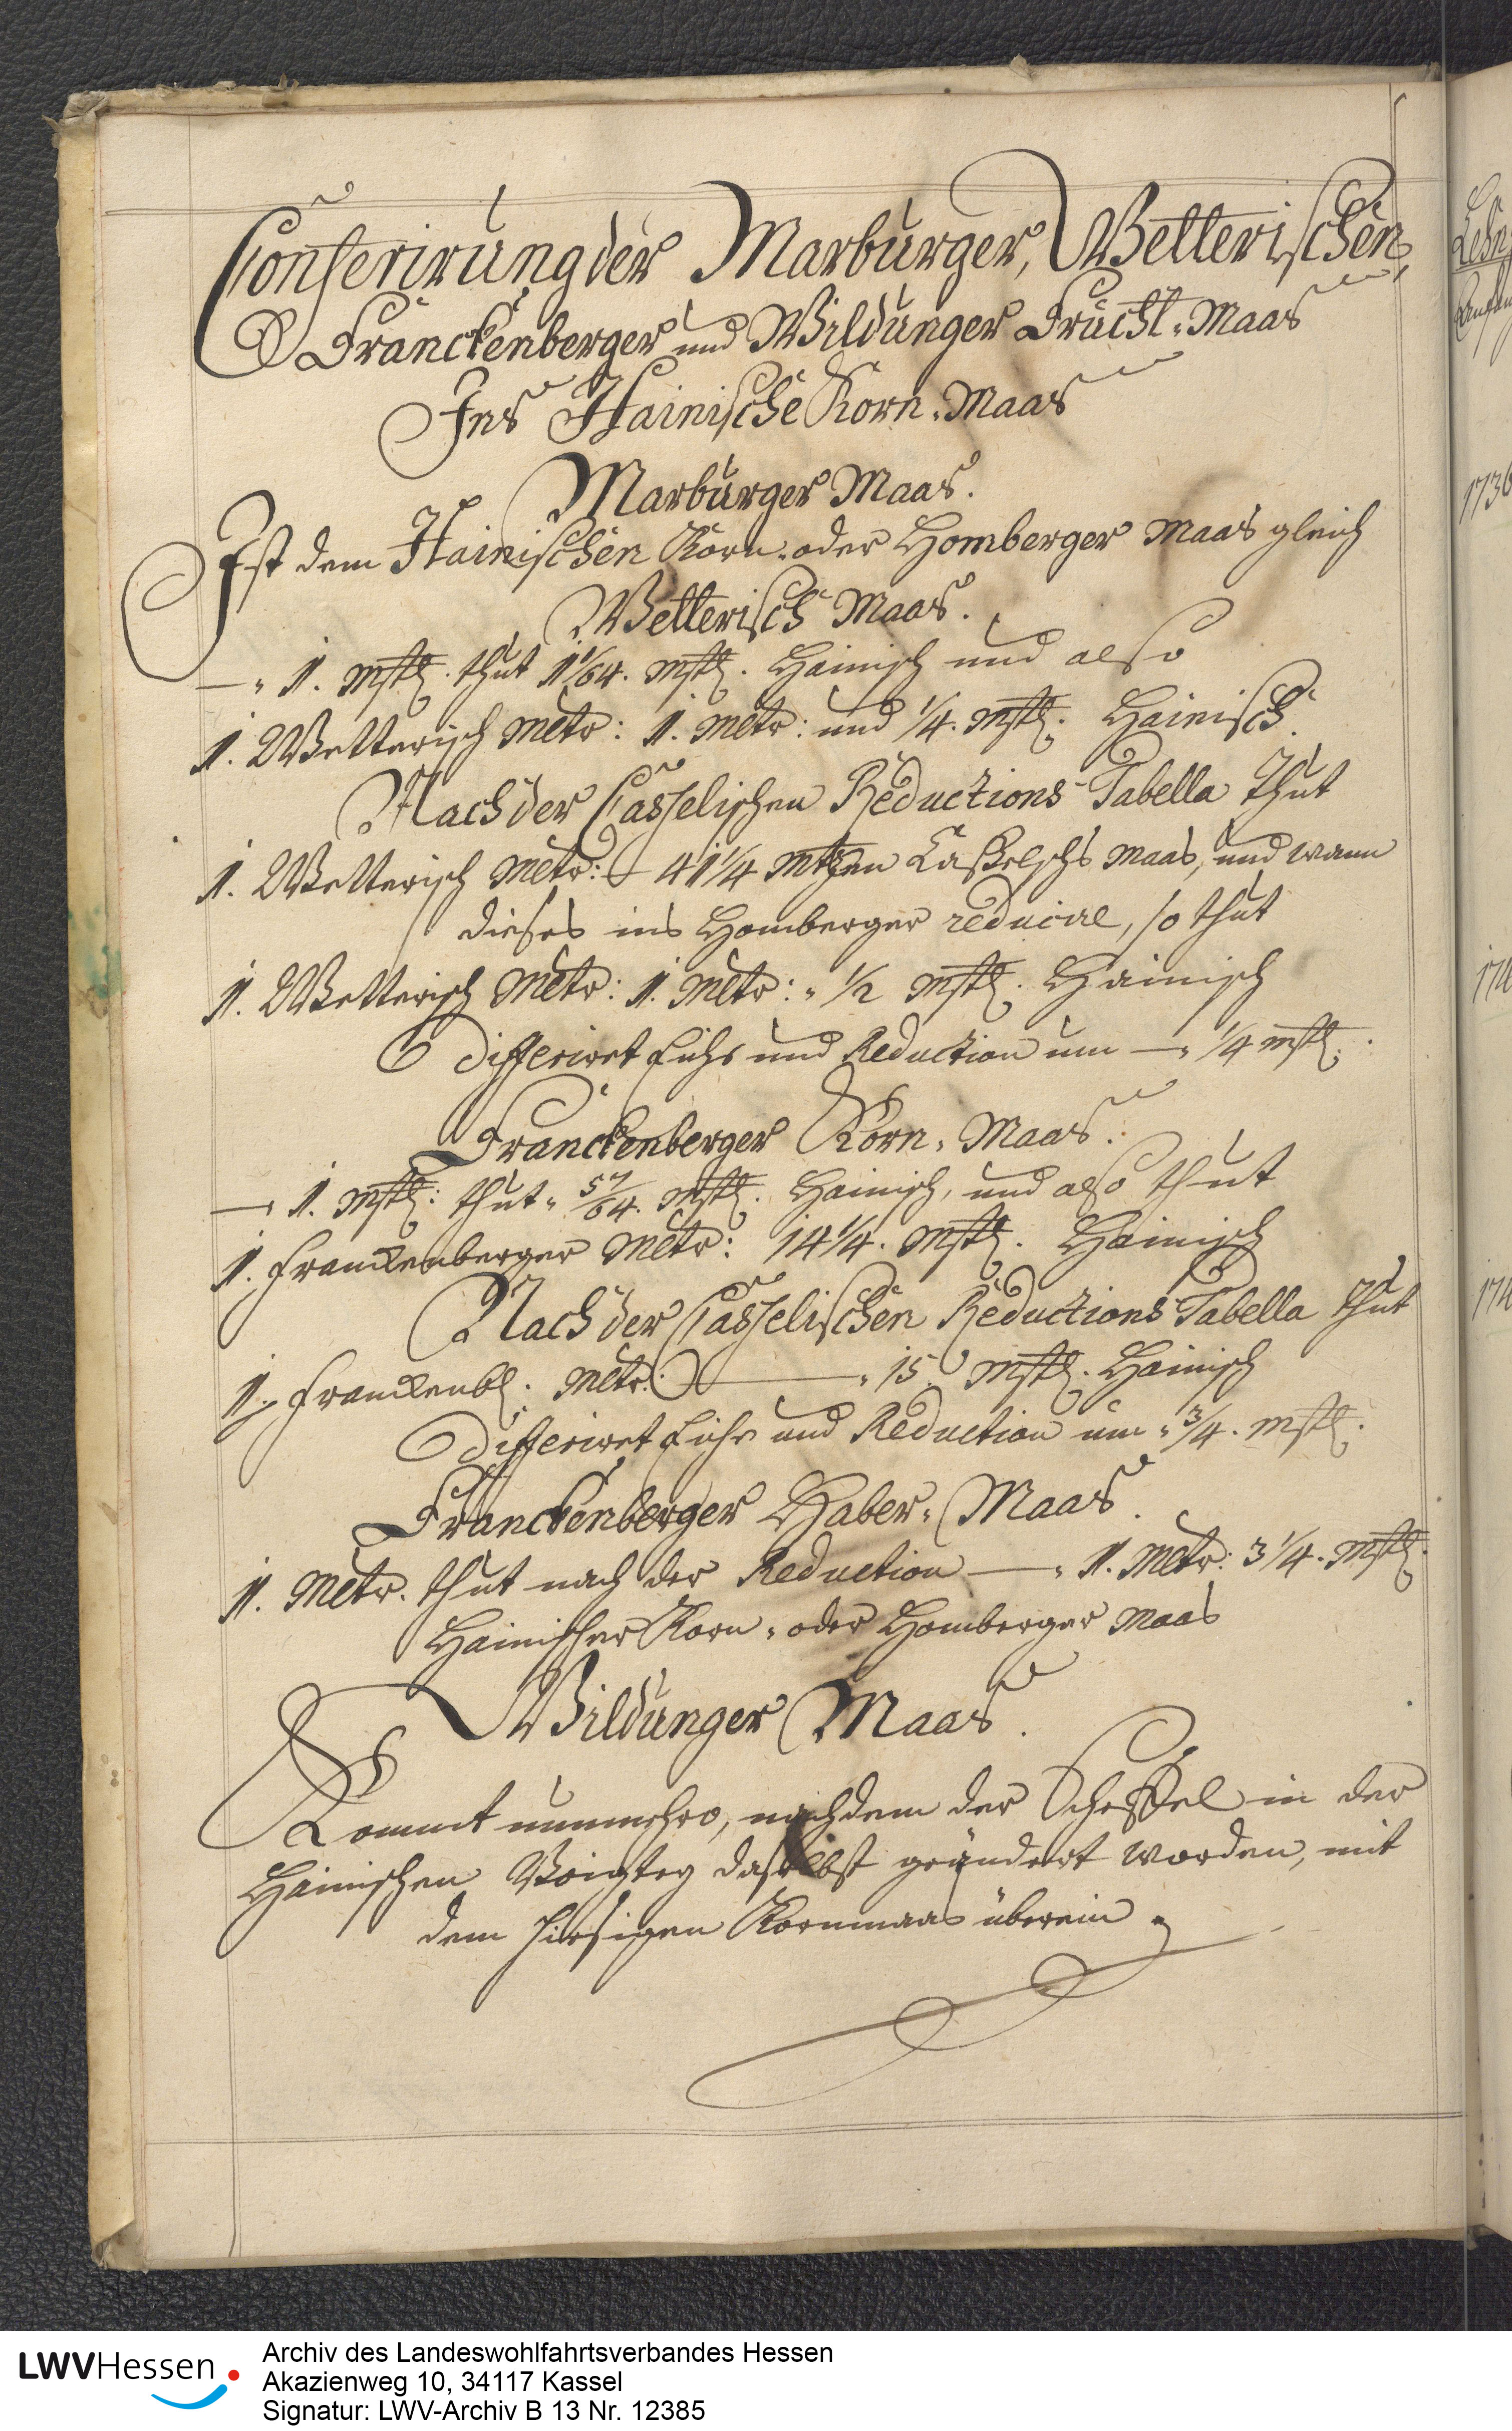 Conferirung der Marburger, Wetterischen,
Franckenberger und Wildunger Frucht-Maas
Ins Hainische Korn-Maas
Marburger Maas.
Ist dem Hainischen Korn- oder Homberger Maas gleich
Wetterisch Maas.
—„ 1. Mst. thut 1 1/64. Mst. Hainisch und also
1. Wetterisch Mltr: 1. Mltr: und 1/4. Mst. Hainisch.
Nach der Casselischen Reductions-Tabella thut
1. Wetterisch Mltr: 41 1/4 Mtzen Caßelschs Maas, und wann
dieses ins Homberger reducirt, so thut
1. Wetterisch Mltr: 1. Mltr: „ 1/2 Mst. Hainisch
Differiret Eiche und Reduction um —„ 1/4 Mst.
Franckenberger Korn-Maas.
—„ 1. Mst: thut „ 57/64. Mst. Hainisch, und also thut
1. Franckenberger Mltr: 14 1/4. Mst. Hainisch
Nach der Casselischen Reductions Tabella thut
1. Franckenb. Mltr: — „ 15 Mst. Hainisch
Differiret Eiche und Reduction um „ 3/4. Mst.
Franckenberger Haber-Maas.
1. Mltr. thut nach der Reduction —„ 1. Mltr: 3 1/4. Mst.
Hainischer Korn- oder Homberger Maas
Wildunger Maas.
Kommt nunmehro, nachdem der Scheffel in der
Hainischen Voigtey daselbst geändert worden, mit
dem hiesigen Kornmaas überein
1736
LWVHessen
Archiv des Landeswohlfahrtsverbandes Hessen
Akazienweg 10, 34117 Kassel
Signatur: LWV-Archiv B 13 Nr. 12385